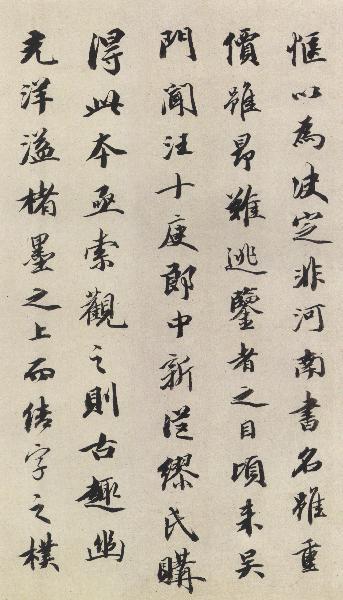 惬以為決定非河南書名雖重
價雖昂難逃鑒者之目頃來吴
門聞汪十庋郎中新從繆氏購
得此本亟索觀之則古趣幽
光洋溢楮墨之上而結字之樸